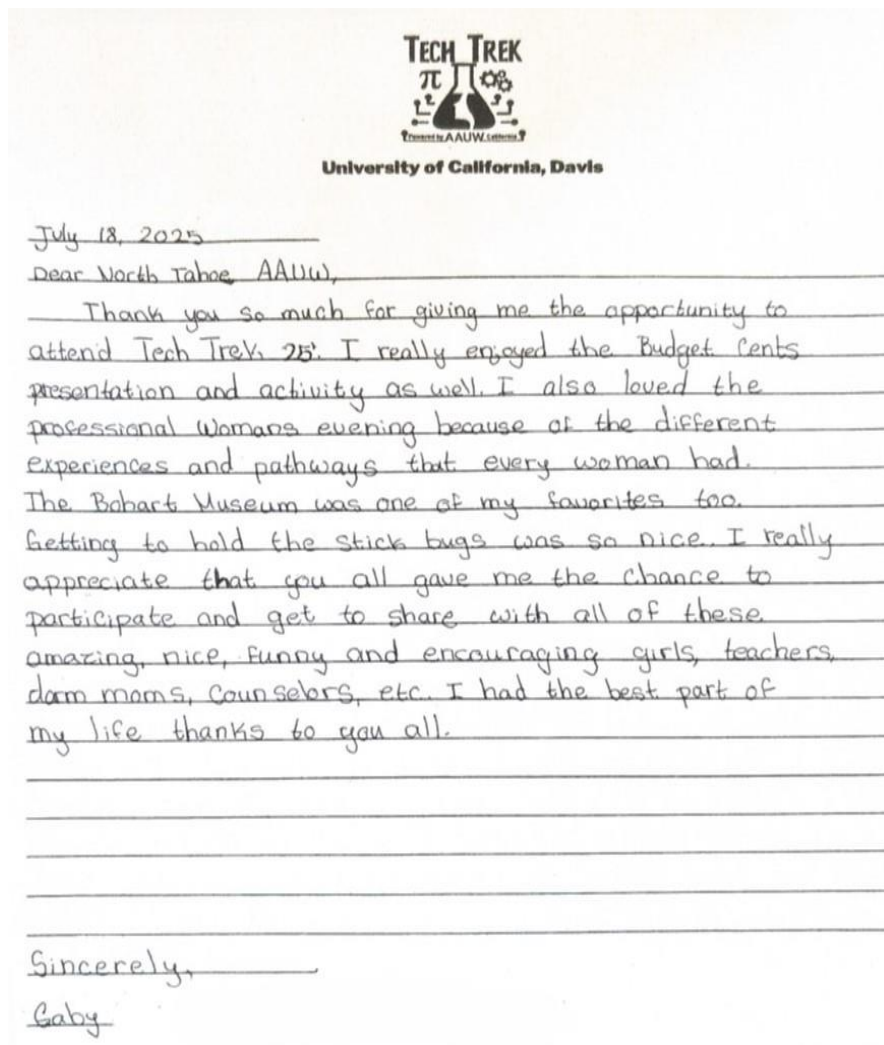 TECH TREK
π
Powered by AAUW California
University of California, Davis
July 18, 2025
Dear North Tahoe AAUW,
Thank you so much for giving me the opportunity to
attend Tech Trek 25'. I really enjoyed the Budget Cents
presentation and activity as well. I also loved the
professional womans evening because of the different
experiences and pathways that every woman had.
The Bohart Museum was one of my favorites too.
Getting to hold the stick bugs was so nice. I really
appreciate that you all gave me the chance to
participate and get to share with all of these
amazing, nice, funny and encouraging girls, teachers,
dorm moms, counselors, etc. I had the best part of
my life thanks to you all.
Sincerely,
Gaby